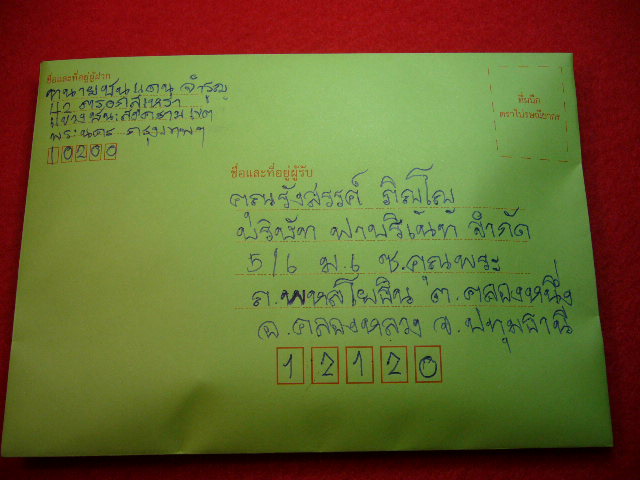 ชื่อและที่อยู่ผู้ฝาก
ทนายชินแดน จำรูญ
ตรอกสุเหร่า
แขวงชนะสงคราม เขต
พระนคร กรุงเทพฯ
10200
ที่ผนึก
ตราไปรษณียากร
ชื่อและที่อยู่ผู้รับ
คุณรังสรรค์ ภิญโญ
บริษัท ฟาบริเน้ท จำกัด
5/6 ม.6 ซ.คุณพระ
ถ.พหลโยธิน ต.คลองหนึ่ง
อ.คลองหลวง จ.ปทุมธานี
12120